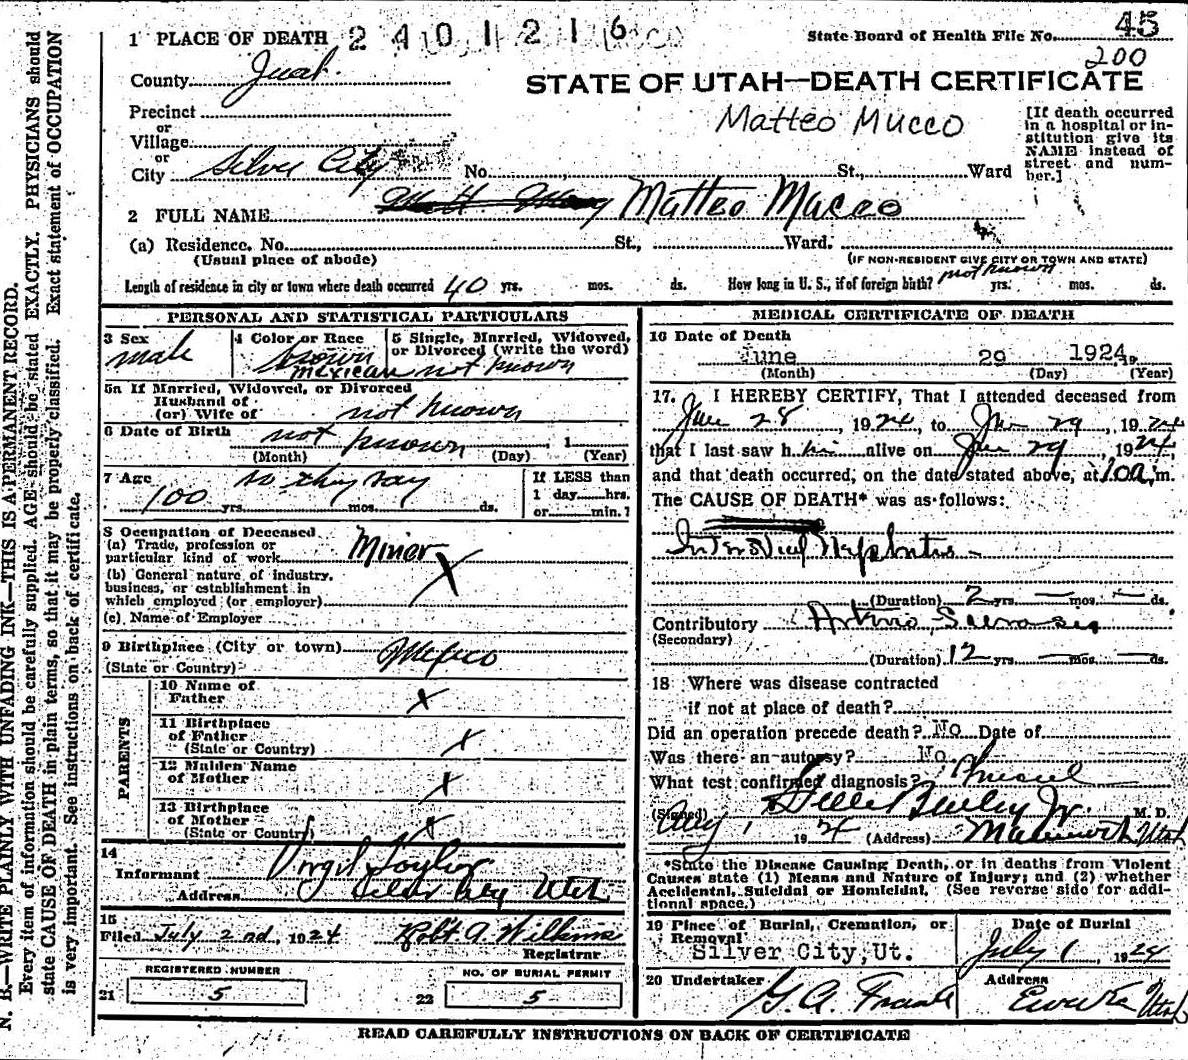 N. B.—WRITE PLAINLY WITH UNFADING INK—THIS IS A PERMANENT RECORD.
Every item of information should be carefully supplied. AGE should be stated EXACTLY. PHYSICIANS should
state CAUSE OF DEATH in plain terms, so that it may be properly classified. Exact statement of OCCUPATION
is very important. See instructions on back of certificate.
1 PLACE OF DEATH 2401216
State Board of Health File No. 45
200
County Juab
STATE OF UTAH—DEATH CERTIFICATE
Precinct
or
Village
or
City Silver City No. St., Ward
Matteo Mucco
[If death occurred
in a hospital or in-
stitution give its
NAME instead of
street and num-
ber.]
2 FULL NAME Matteo Mucco
(a) Residence. No. St., Ward.
(Usual place of abode)
(IF NON-RESIDENT GIVE CITY OR TOWN AND STATE)
Length of residence in city or town where death occurred 40 yrs. mos. ds. How long in U. S., if of foreign birth? not known yrs. mos. ds.
PERSONAL AND STATISTICAL PARTICULARS
3 Sex
male
4 Color or Race
brown
mexican
5 Single, Married, Widowed,
or Divorced (write the word)
not known
5a If Married, Widowed, or Divorced
Husband of
(or) Wife of not known
6 Date of Birth not known, 1
(Month) (Day) (Year)
7 Age so they say
100 yrs. mos. ds.
If LESS than
1 day hrs.
or min.?
8 Occupation of Deceased
(a) Trade, profession or
particular kind of work Miner
(b) General nature of industry,
business, or establishment in
which employed (or employer) X
(c) Name of Employer
9 Birthplace (City or town)
(State or Country) Mexico
PARENTS
10 Name of
Father X
11 Birthplace
of Father
(State or Country) X
12 Maiden Name
of Mother X
13 Birthplace
of Mother
(State or Country) X
14
Informant Virgil Taylor
Address Silver City Utah
15
Filed July 2nd, 1924 Robt A. Wilkins
Registrar
REGISTERED NUMBER
21 5
NO. OF BURIAL PERMIT
22 5
MEDICAL CERTIFICATE OF DEATH
16 Date of Death
June 29 1924 19
(Month) (Day) (Year)
17. I HEREBY CERTIFY, That I attended deceased from
June 28, 1924, to June 29, 1924
that I last saw him alive on June 29, 1924,
and that death occurred, on the date stated above, at 10 a m.
The CAUSE OF DEATH* was as follows:
Nephritis
(Duration) 2 yrs. — mos. — ds.
Contributory
(Secondary)
(Duration) 12 yrs. — mos. — ds.
18 Where was disease contracted
if not at place of death?
Did an operation precede death? No Date of
Was there an autopsy? No
What test confirmed diagnosis?
(Signed) M. D.
Aug 1, 1924 (Address) Mammoth Utah
*State the Disease Causing Death, or in deaths from Violent
Causes state (1) Means and Nature of Injury; and (2) whether
Accidental, Suicidal or Homicidal. (See reverse side for addi-
tional space.)
19 Place of Burial, Cremation, or
Removal
Silver City, Ut.
Date of Burial
July 1 1924
20 Undertaker
G. A.
Address
Eureka Utah
READ CAREFULLY INSTRUCTIONS ON BACK OF CERTIFICATE